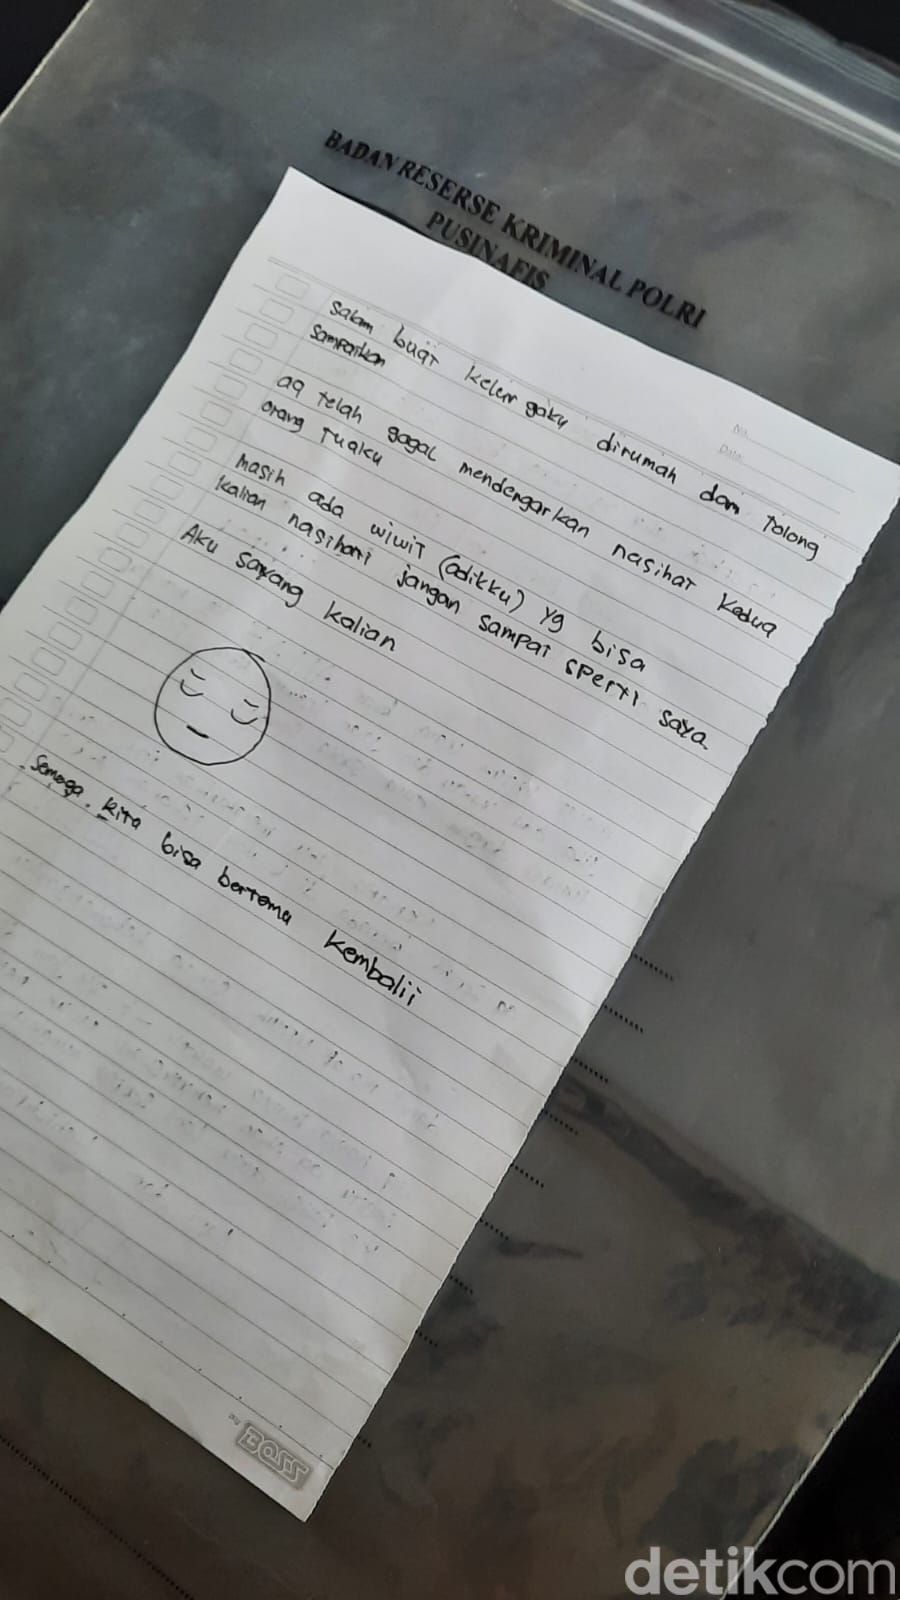 BADAN RESERSE KRIMINAL POLRI
PUSINAFIS
No.
Date.
Salam buat keluargaku dirumah dan tolong
sampaikan
aq telah gagal mendengarkan nasihat kedua
orang tuaku
masih ada wiwit (adikku) yg bisa
kalian nasihati jangan sampai sperti saya
Aku sayang kalian
Semoga kita bisa bertemu kembalii
BOSS
detikcom